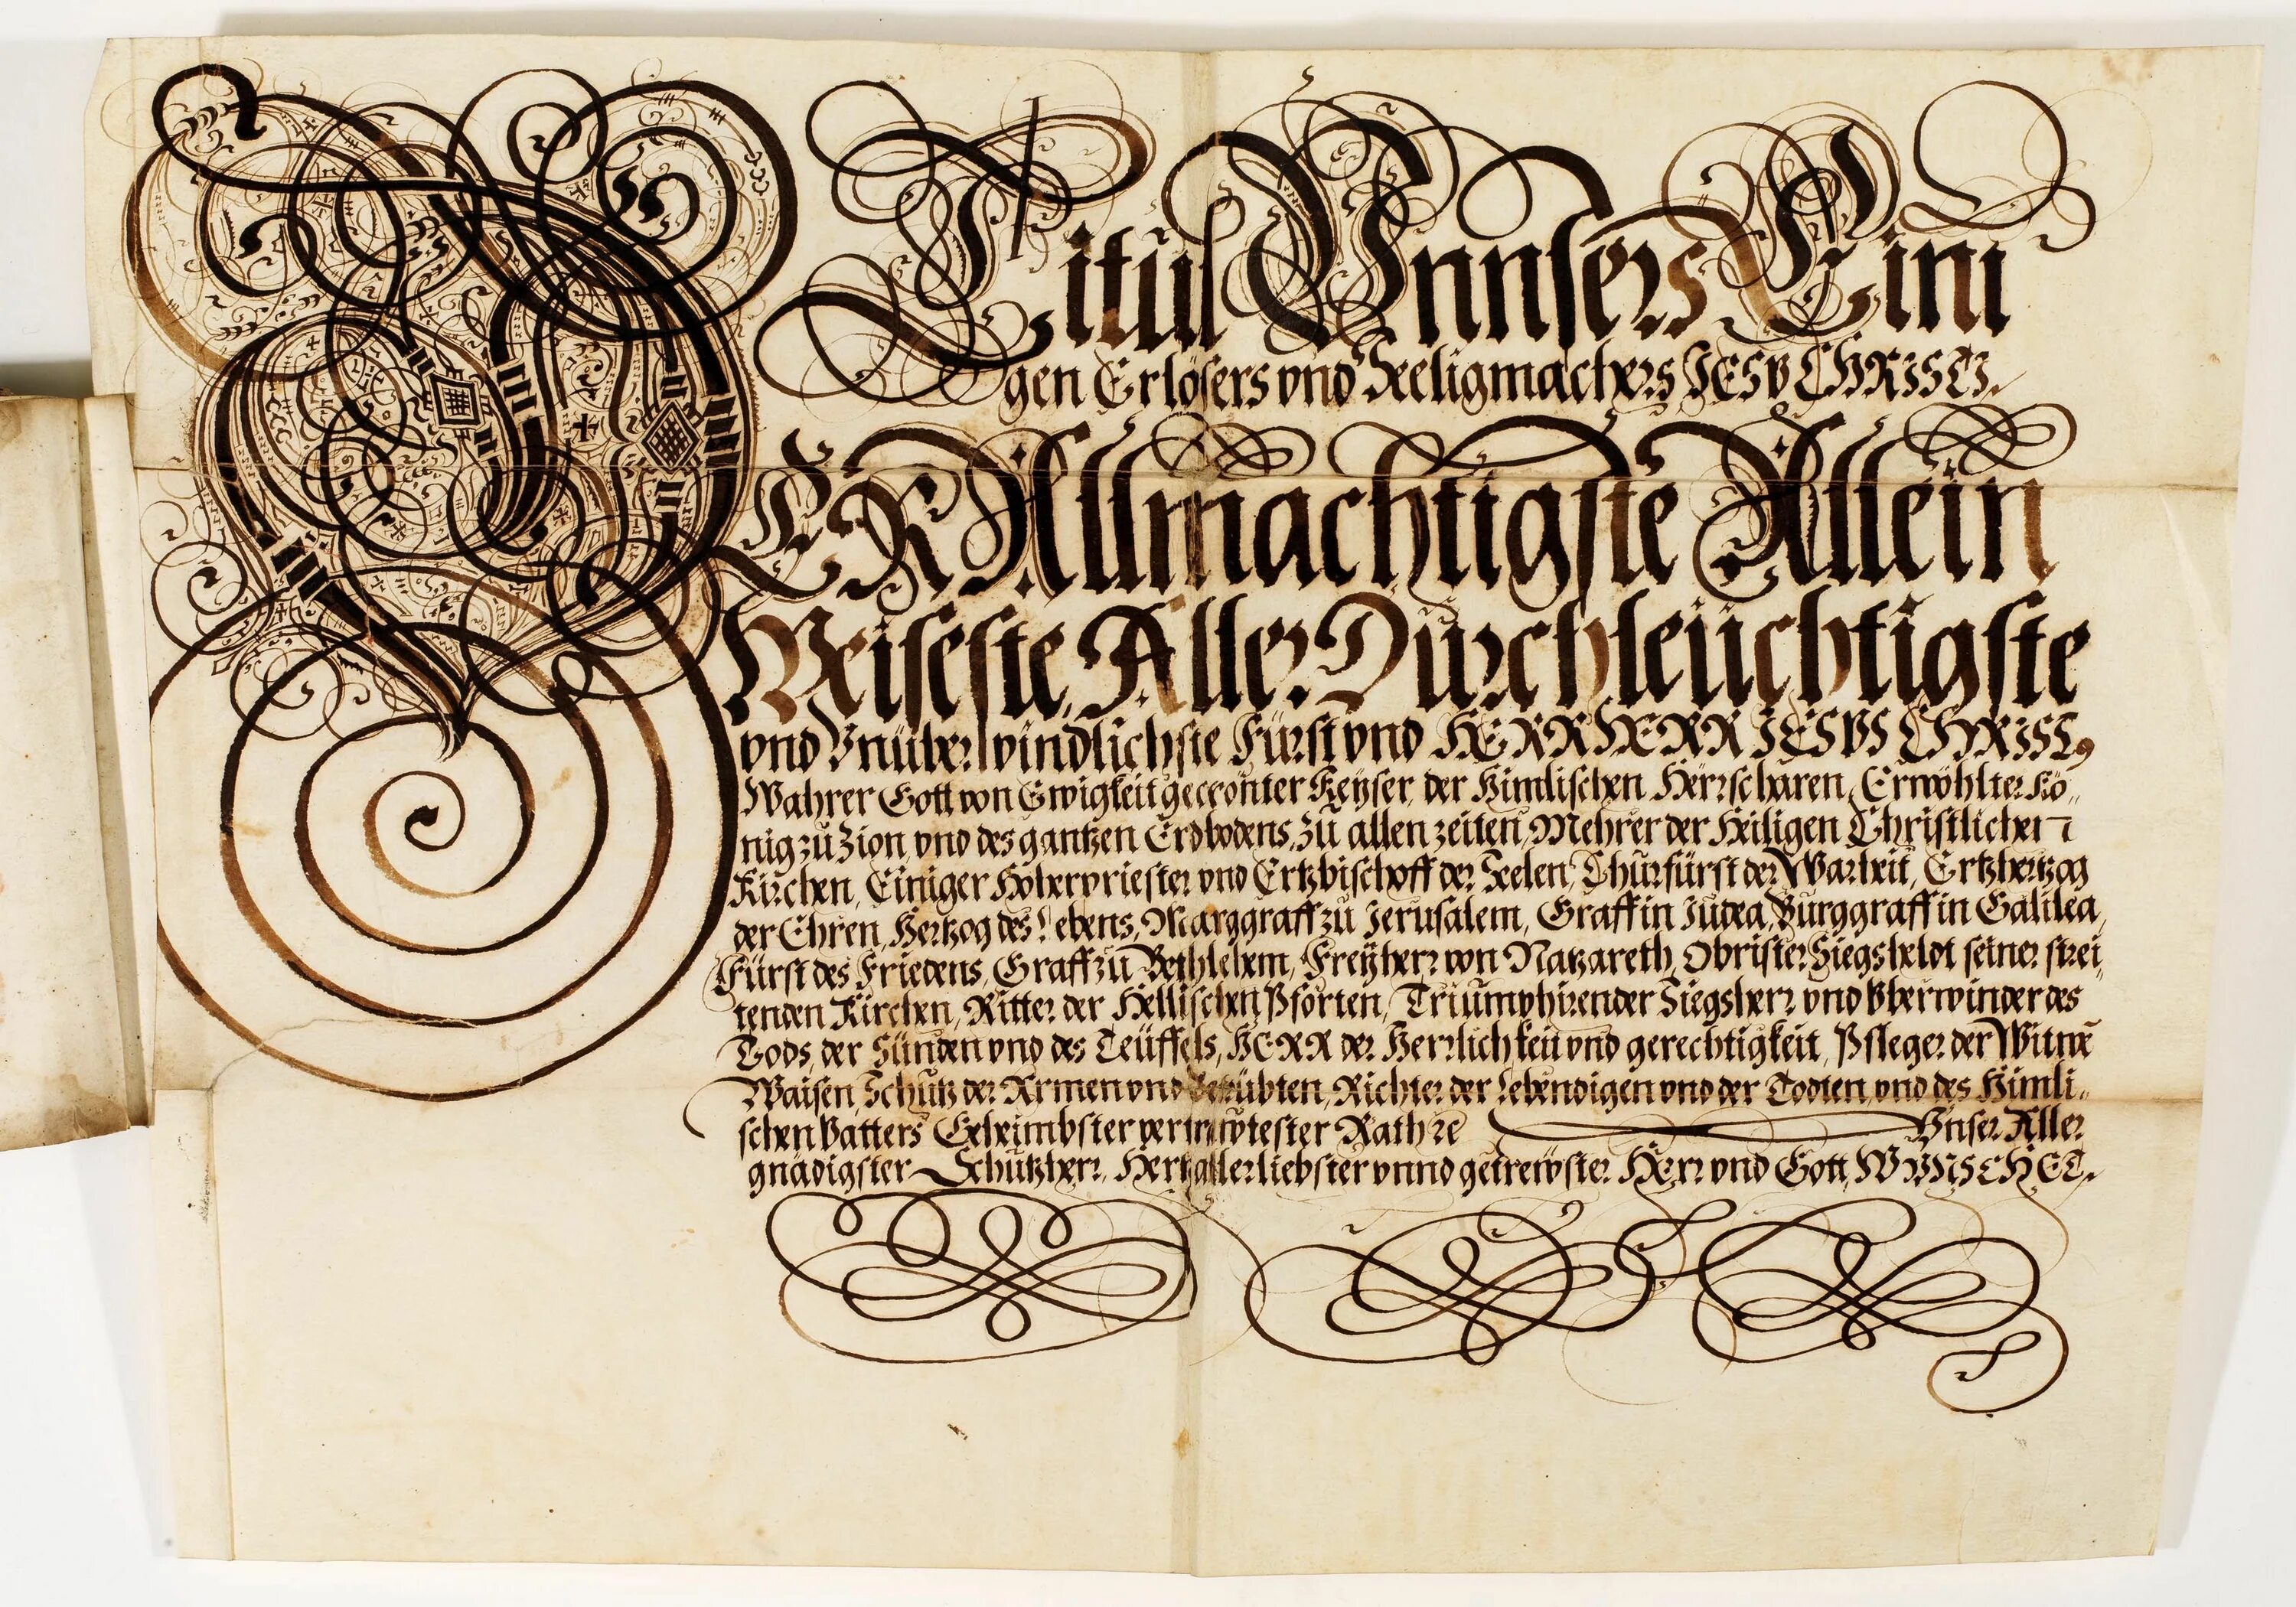 Titul Vnnsers Eini
gen Erlösers vnd Seeligmachers JESV CHRISTI.
DER Allmächtigste Allein
Weiseste, Aller Durchleüchtigste
vnd Vnüberwindlichste Fürst vnd HERR HERR JESVS CHRISTꝰ
Wahrer Gott von Ewigkeit gecrönter Keÿser, der Himlischen Herrscharen, Erwöhlter Kö„
nig zu Zion, vnd des gantzen Erdbodens, Zu allen zeiten, Mehrer der Heiligen Christlicher
Kirchen, Einiger Hoherpriester vnd Ertzbischoff der Seelen, Churfürst der Warheit, Ertzhertzog
der Ehren, Hertzog des Lebens, Marggraff zu Jerusalem, Graff in Judea, Burggraff in Galilea,
Fürst des Friedens, Graff zu Bethlehem, Freÿherr von Natzareth, Obrister Siegsheldt seiner strei„
tenden Kirchen, Ritter der Hellischen Pforten, Triumphirender Siegsherr vnd Vberwinder des
Tods, der Sünden vnd des Teüffels, HERR der Herrlichkeit vnd gerechtigkeit, Pfleger der Witwē
Waisen, Schutz der Armen vnd Betrübten, Richter der Lebendigen vnd der Todten, vnd des Himli„
schen Vatters Geheimbster vertrawtester Rath ꝛc Vnser Aller
gnädigster Schutzherr, Hertzallerliebster vnnd getrewster Herr vnd Gott, WVNSCHET.